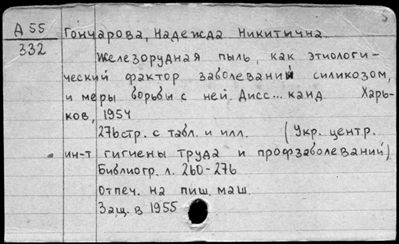 А 55 Гончарова, Надежда Никитична.
332
Железорудная пыль, как этиологи-
ческий фактор заболевания силикозом,
и меры борьбы с ней. Дисс... канд Харь-
ков, 1954
276стр. с табл. и илл. (Укр. центр.
ин-т гигиены труда и профзаболеваний)
Библиогр. л. 260-276
Отпеч. на пиш. маш.
Защ. в 1955